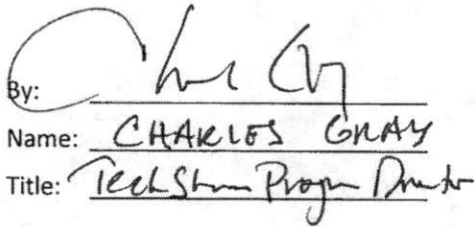 By:
Name: CHARLES GRAY
Title: Tech Program Director